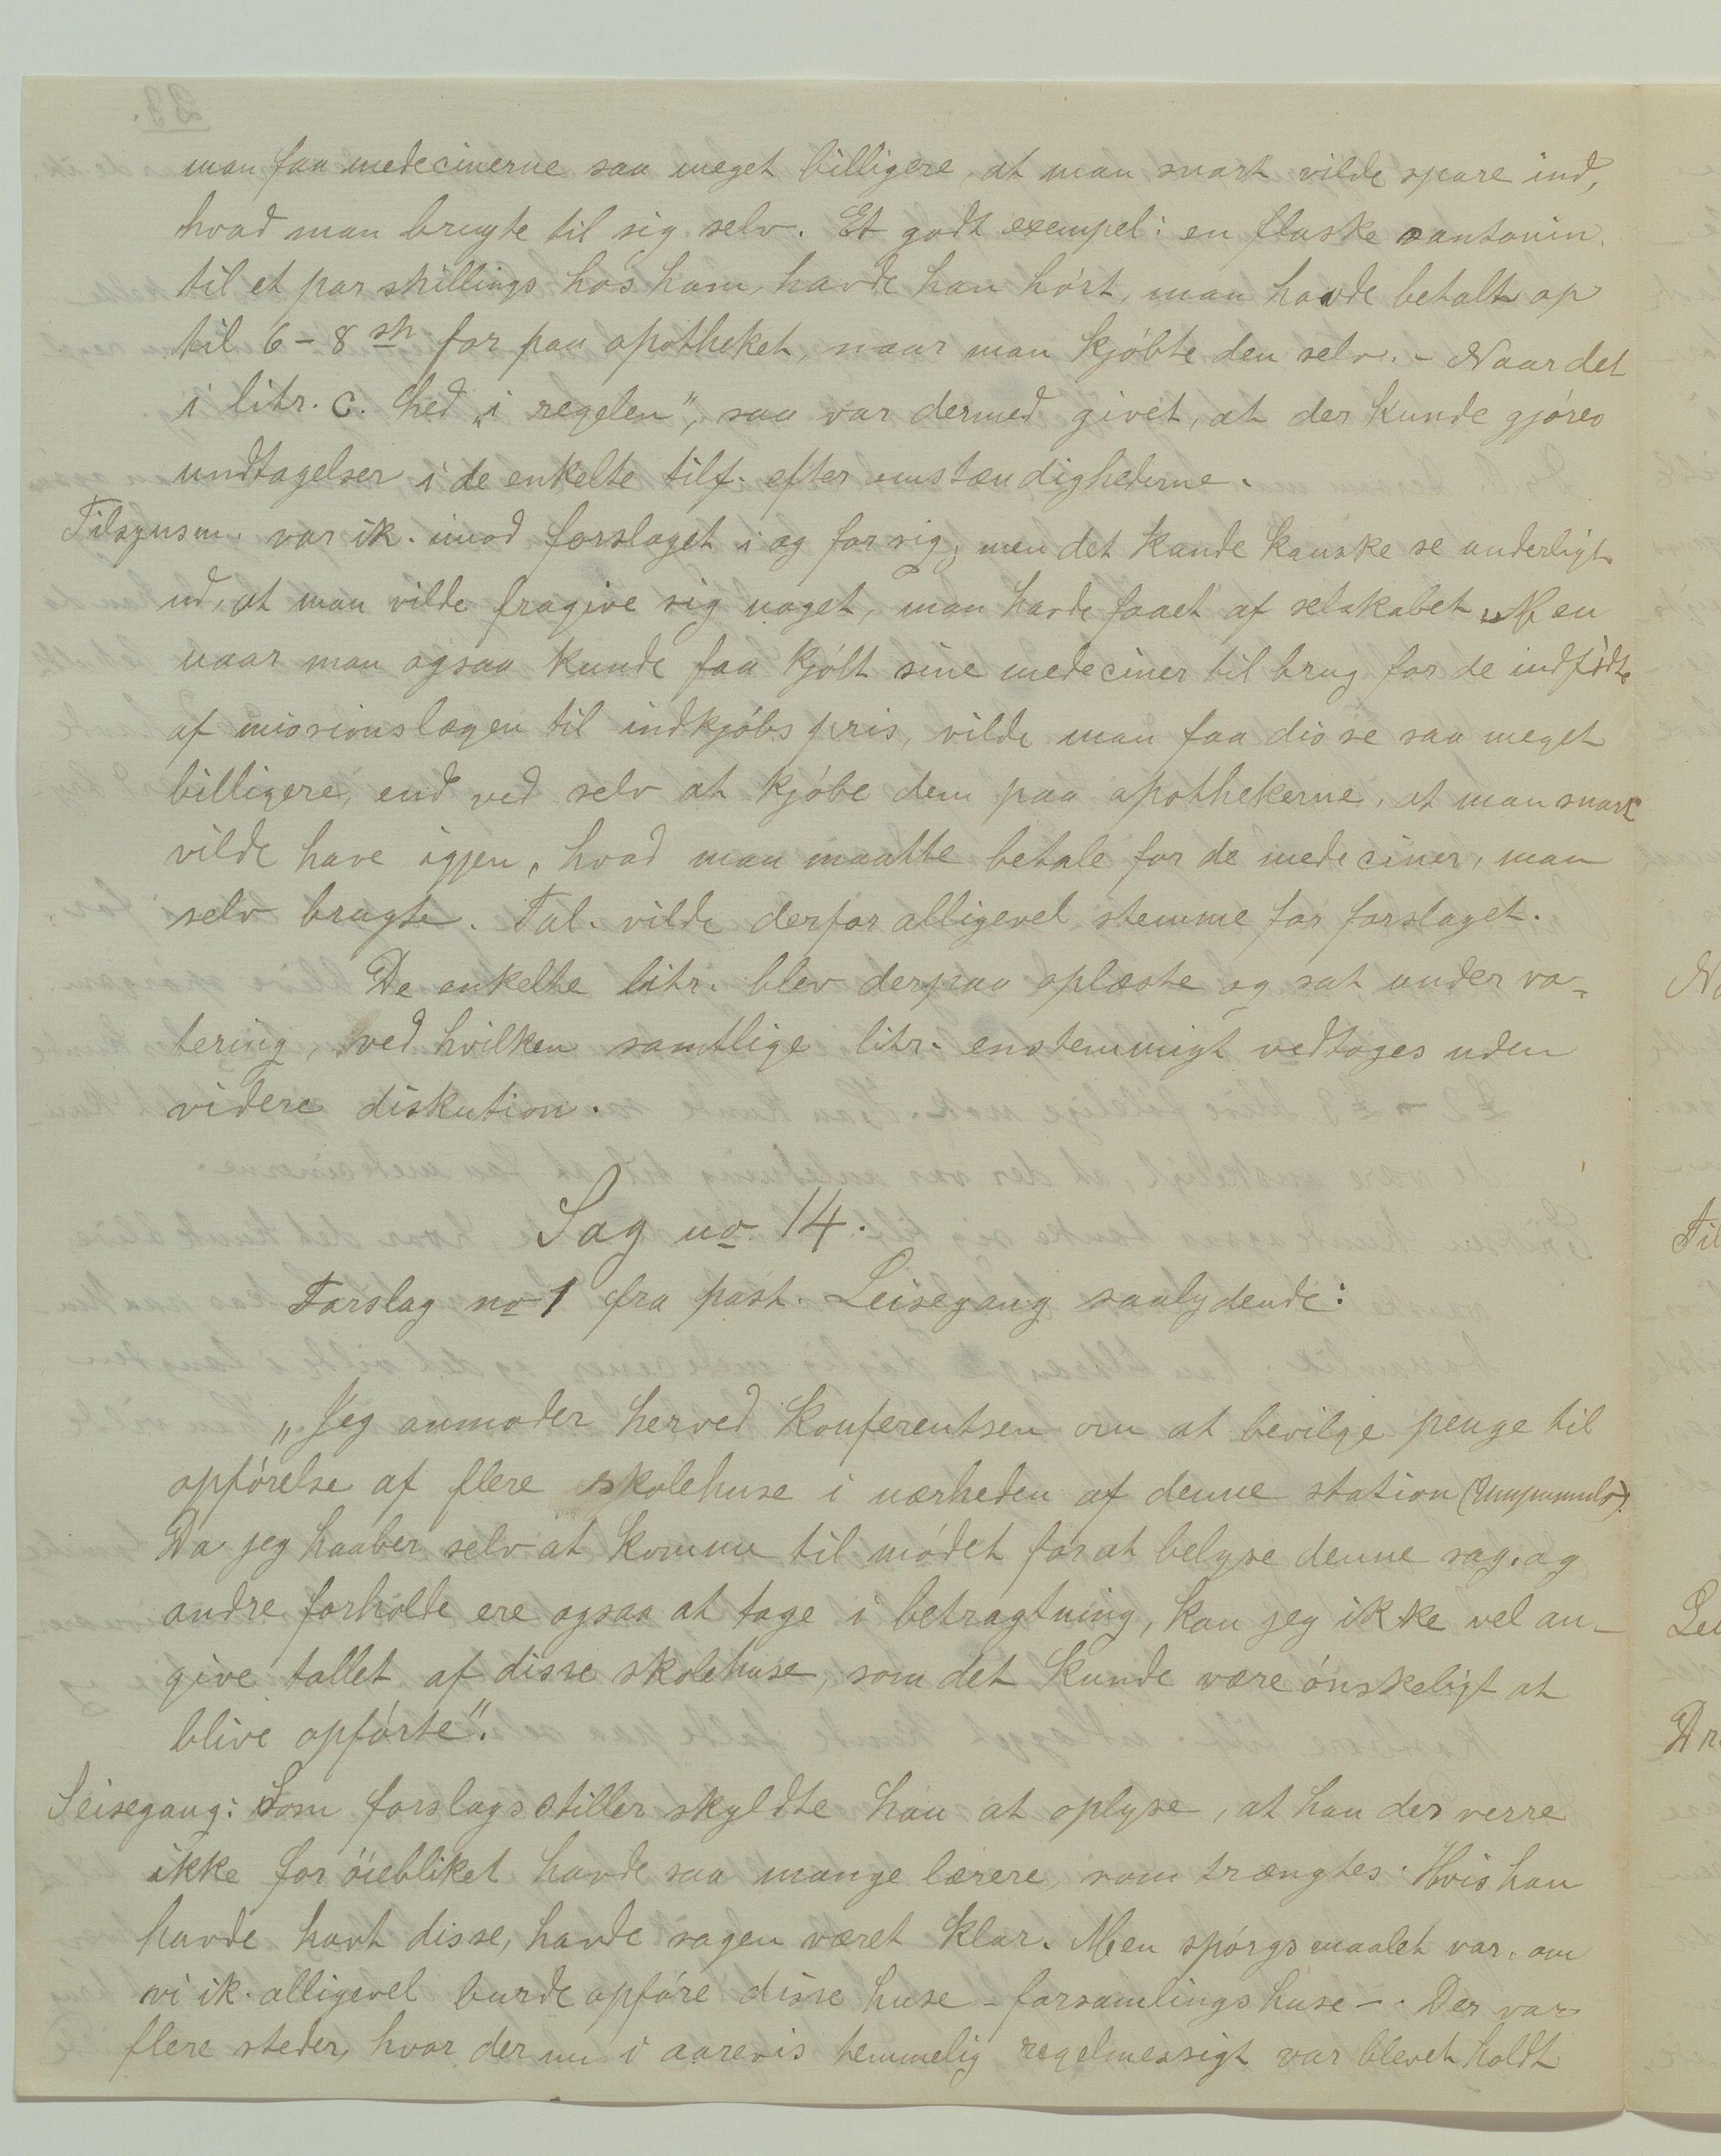 man faa medecinerne saa meget billigere, at man snart vilde spare ind,
hvad man brugte til sig selv. Et godt exempel: en flaske santonin
til et par skillings hos ham, havde han hórt, man havde betalt op
til 6-8 sh for paa apotheket, naar man kjóbte den selv. - Naar det
i litr. c. hed „i regelen", saa var dermed givet, at der kunde gjóres
undtagelser i de enkelte tilf. efter omstændighederne.
Tilsynsm. var ik. imod forslaget i og for sig, men det kunde kanske se underligt
ud, at man vilde fragive sig noget, man havde faaet af selskabet. Men
naar man ogsaa kunde faa kjóbt sine medeciner til brug for de indfódte
af missionslægen til indkjóbspris, vilde man faa disse saa meget
billigere, end ved selv at kjóbe dem paa apothekerne, at man snart
vilde have igjen, hvad man maatte betale for de medeciner, man
selv brugte. Tal. vilde derfor alligevel stemme for forslaget.
De enkelte litr. blev derpaa oplæste og sat under vo-
tering, ved hvilken samtlige litr. enstemmigt vedtoges uden
videre diskution.
Sag no 14.
Forslag no 1 fra past. Leisegang saalydende:
„Jeg anmoder herved Konferentsen om at bevilge penge til
opfórelse af flere skolehuse i nærheden af denne station (Umpumulo).
Da jeg haaber selv at komme til módet for at belyse denne sag, og
andre forholde ere ogsaa at tage i betragtning, kan jeg ikke vel an-
give tallet af disse skolehuse, som det kunde være ónskeligt at
blive opfórte".
Leisegang: Som forslagsstiller skyldte han at oplyse, at han des verre
ikke for óiebliket havde saa mange lærere, som trængtes. Hvis han
havde havt disse, havde sagen været klar. Men spórgsmaalet var, om
vi ik. alligevel burde opfóre disse huse - forsamlingshuse -. Der var
flere steder, hvor der nu i aarevis temmelig regelmessigt var blevet holdt